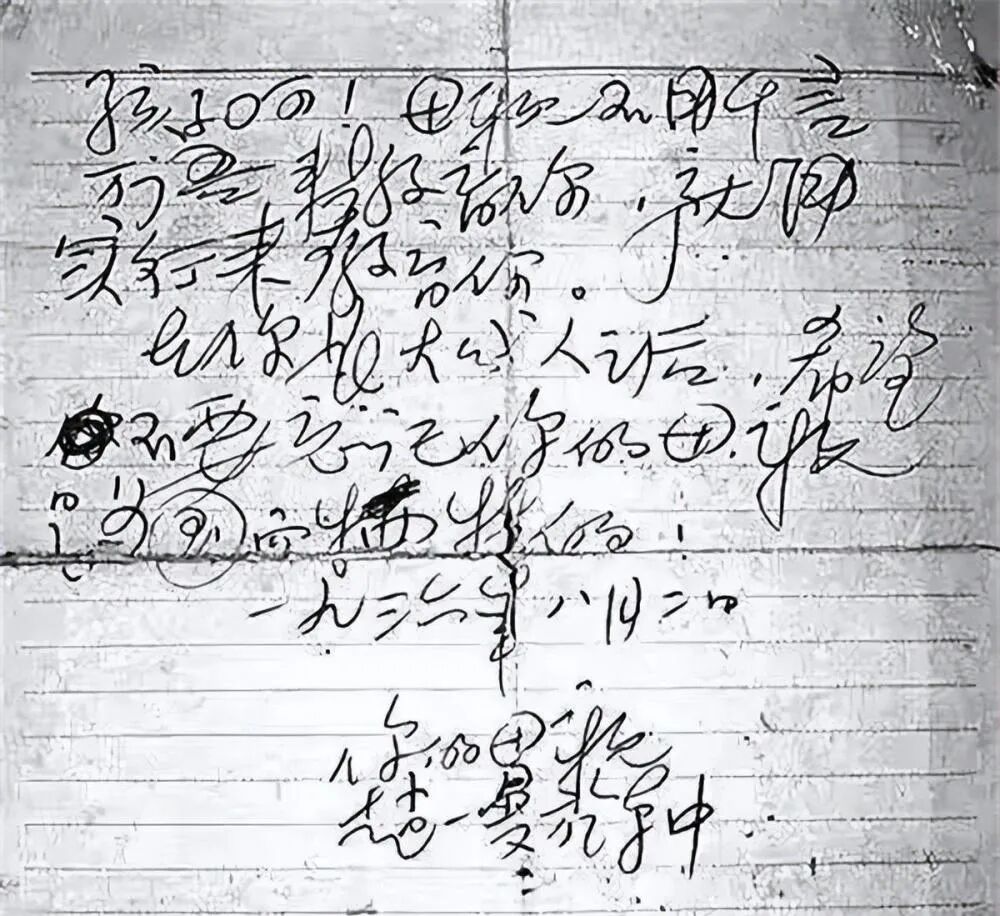 孩子啊！母亲不用千言
万语来教育你，就用
实行来教育你。
在你长大成人之后，希望
不要忘记你的母亲
是为国而牺牲的！
一九三六年八月二日
你的母亲
赵一曼于车中